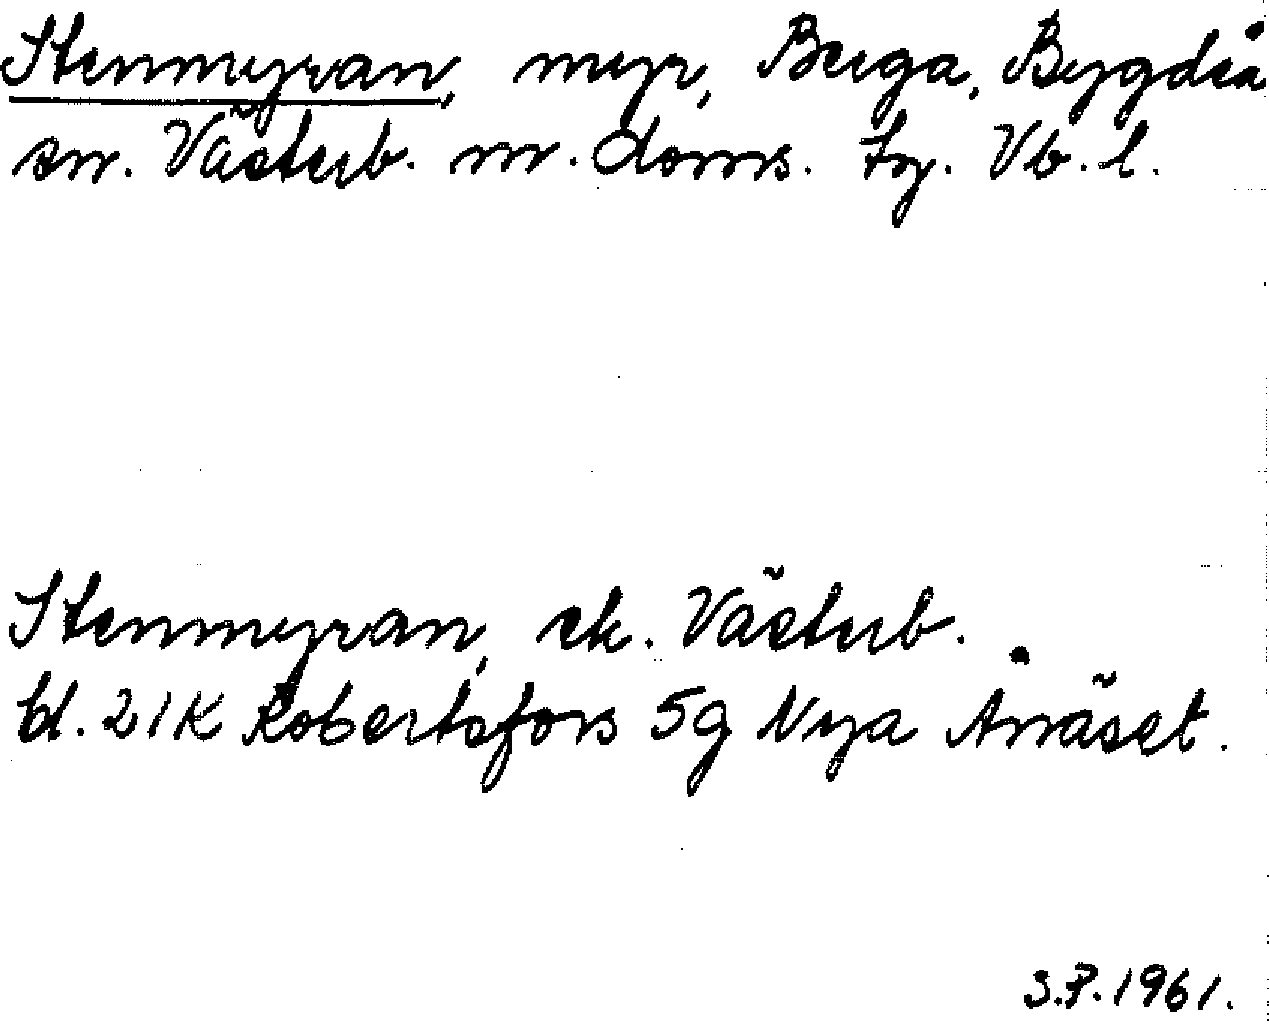 Stenmyran, myr, Berga, Bygdeå
sn. Västerb. n. doms. tg. Vb. l.
Stenmyran, ek. Västerb.
bl. 21K Robertsfors 5g Nya Ånäset.
S.P. 1961.